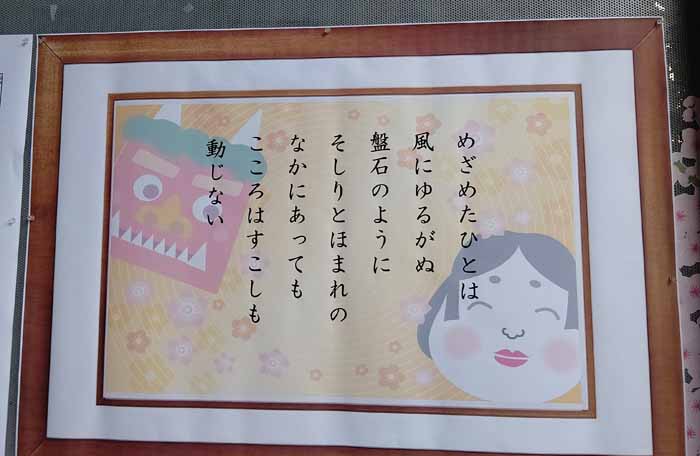 めざめたひとは
風にゆるがぬ
盤石のように
そしりとほまれの
なかにあっても
こころはすこしも
動じない